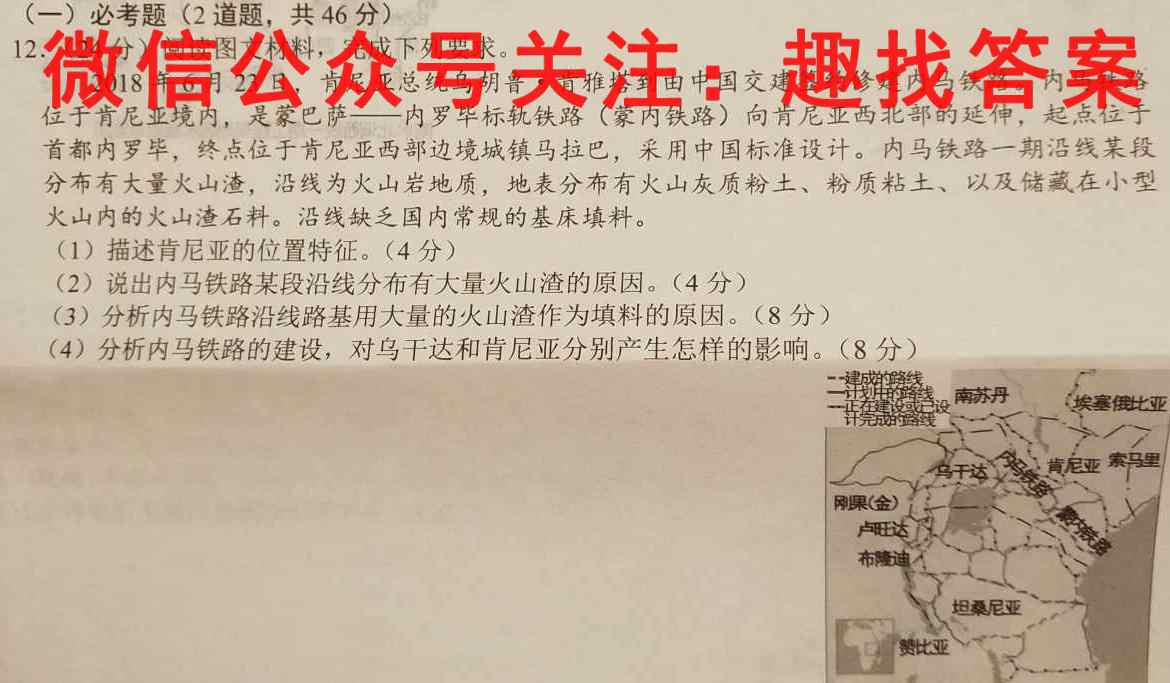 （一）必考题（2 道题，共 46 分）
微信公众号关注：趣找答案
12.（24 分）阅读图文材料，完成下列要求。
2018 年 6 月 23 日，肯尼亚总统乌胡鲁·肯雅塔到由中国交建 修建内马铁路。内马铁路
位于肯尼亚境内，是蒙巴萨——内罗毕标轨铁路（蒙内铁路）向肯尼亚西北部的延伸，起点位于
首都内罗毕，终点位于肯尼亚西部边境城镇马拉巴，采用中国标准设计。内马铁路一期沿线某段
分布有大量火山渣，沿线为火山岩地质，地表分布有火山灰质粉土、粉质粘土、以及储藏在小型
火山内的火山渣石料。沿线缺乏国内常规的基床填料。
（1）描述肯尼亚的位置特征。（4 分）
（2）说出内马铁路某段沿线分布有大量火山渣的原因。（4 分）
（3）分析内马铁路沿线路基用大量的火山渣作为填料的原因。（8 分）
（4）分析内马铁路的建设，对乌干达和肯尼亚分别产生怎样的影响。（8 分）
建成的路线
计划中的路线
正在建设或已设
计完成的路线
南苏丹
埃塞俄比亚
乌干达
内马铁路
肯尼亚
索马里
刚果(金)
蒙内铁路
卢旺达
布隆迪
坦桑尼亚
赞比亚